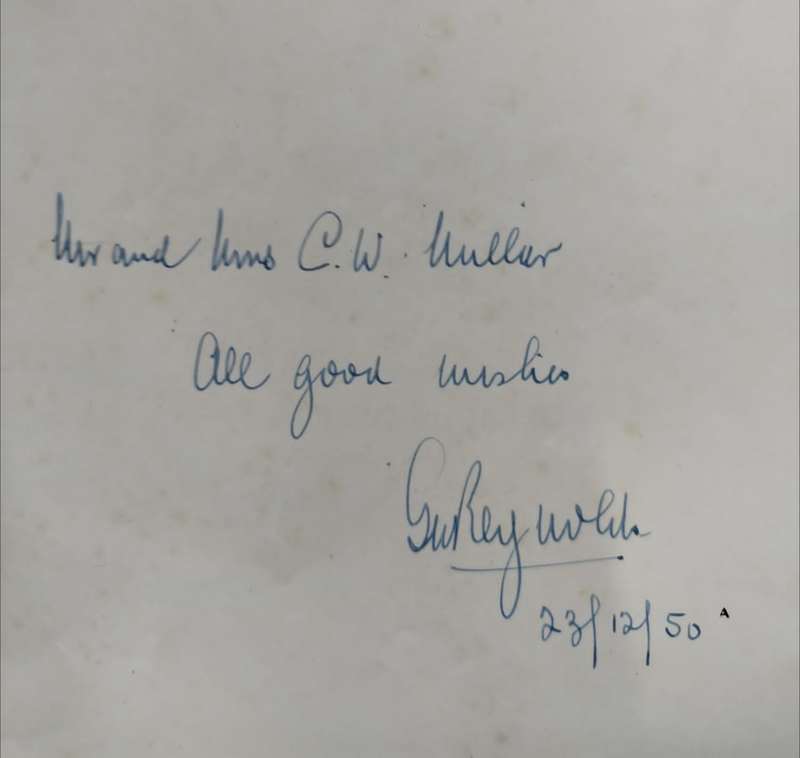 Mr and Mrs C.W. Millar
All good wishes
GWReynolds
23/12/50
A